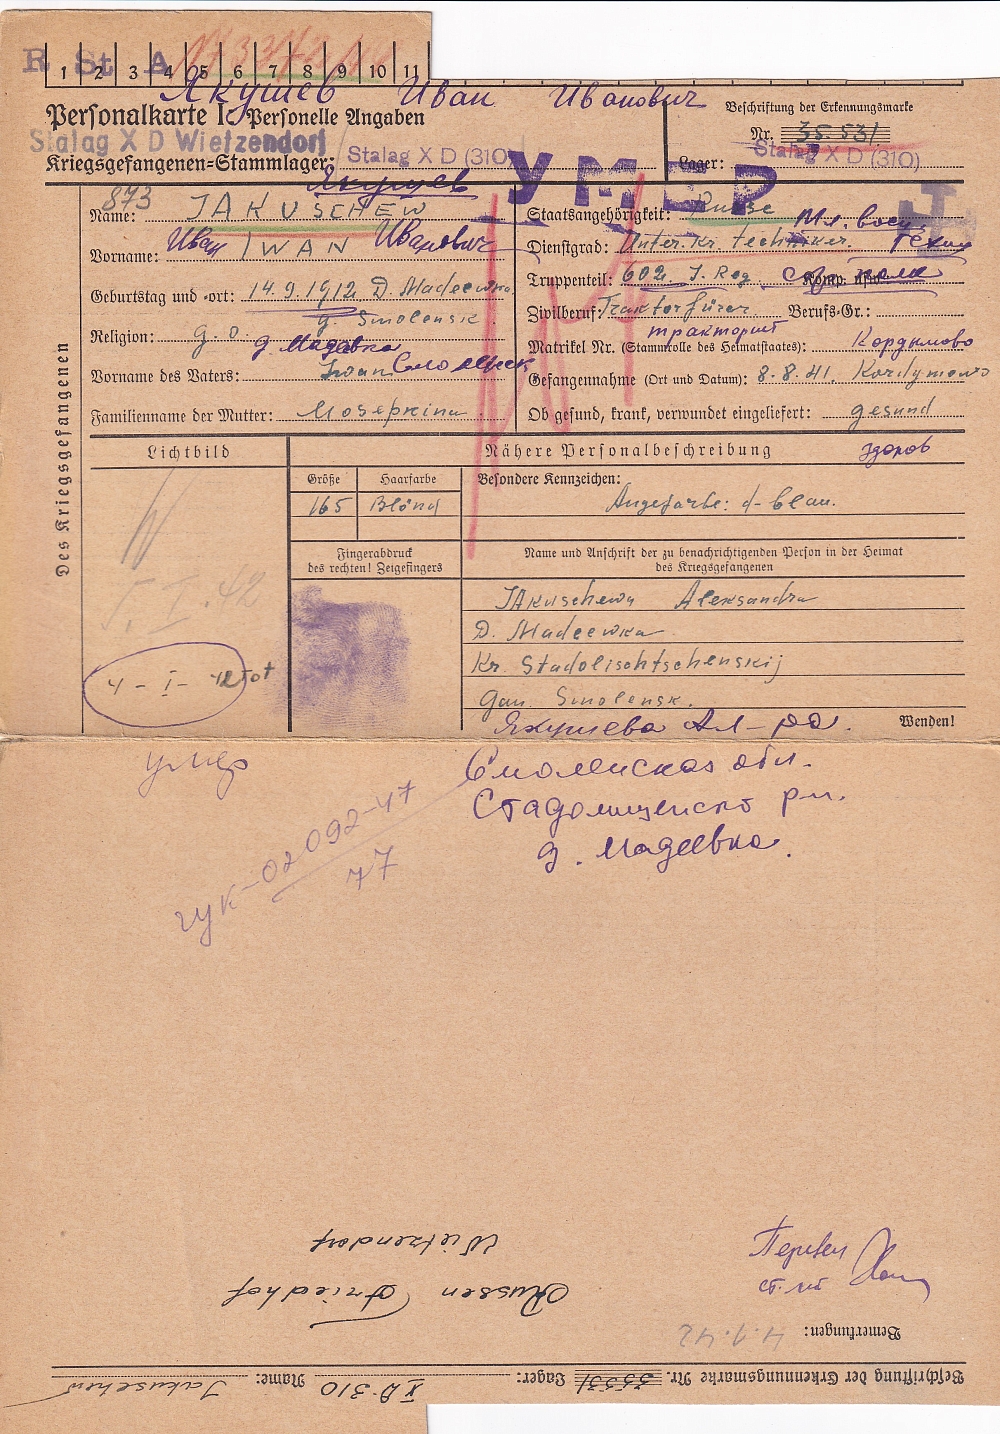 R St A
1 2 3 4 5 6 7 8 9 10 11
Якушев Иван Иванович
Personalkarte I: Personelle Angaben
Beschriftung der Erkennungsmarke
Nr. 35531
Stalag X D Wietzendorf
Kriegsgefangenen-Stammlager: Stalag X D (310)
Lager: Stalag X D (310)
УМЕР
Des Kriegsgefangenen
873
Якушев
Name: JAKUSCHEW
Staatsangehörigkeit: Russe
Иван Иванович
Vorname: IWAN
Мл. воен. техник
Dienstgrad: Unter. Kr. techniker.
Geburtstag und -ort: 14.9.1912 D. Madeewka
g. Smolensk.
Truppenteil: 602. J. Reg. Komp. usw.
Religion: g. o.
д. Мадеевка
Zivilberuf: Traktorfürer Berufs-Gr.:
тракторист
Matrikel Nr. (Stammrolle des Heimatstaates): Кардымово
Vorname des Vaters: Iwan Смоленск
Gefangennahme (Ort und Datum): 8.8.41. Kordymowo
Familienname der Mutter:
Ob gesund, krank, verwundet eingeliefert: gesund
здоров
Lichtbild
Nähere Personalbeschreibung
Größe Haarfarbe
165 Blond
Besondere Kennzeichen:
Augefarbe: d-blau.
Fingerabdruck
des rechten! Zeigefingers
Name und Anschrift der zu benachrichtigenden Person in der Heimat
des Kriegsgefangenen
JAkuschewa Aleksandra
D. Madeewka
Kr. Stadolischtschenskij
Gau. Smolensk.
4 - I - 42 tot
Якушева Ал-ра.
Wenden!
умер
Смоленская обл.
Стадолищенск рн.
д. Мадеевка.
гук-02092-47
77
Перевел
ст. лт
Russen Friedhof
Wietzendorf
Bemerkungen: 4.1.42
Beschriftung der Erkennungsmarke Nr. 35531 Lager: X D 310 Name: Jakuschew